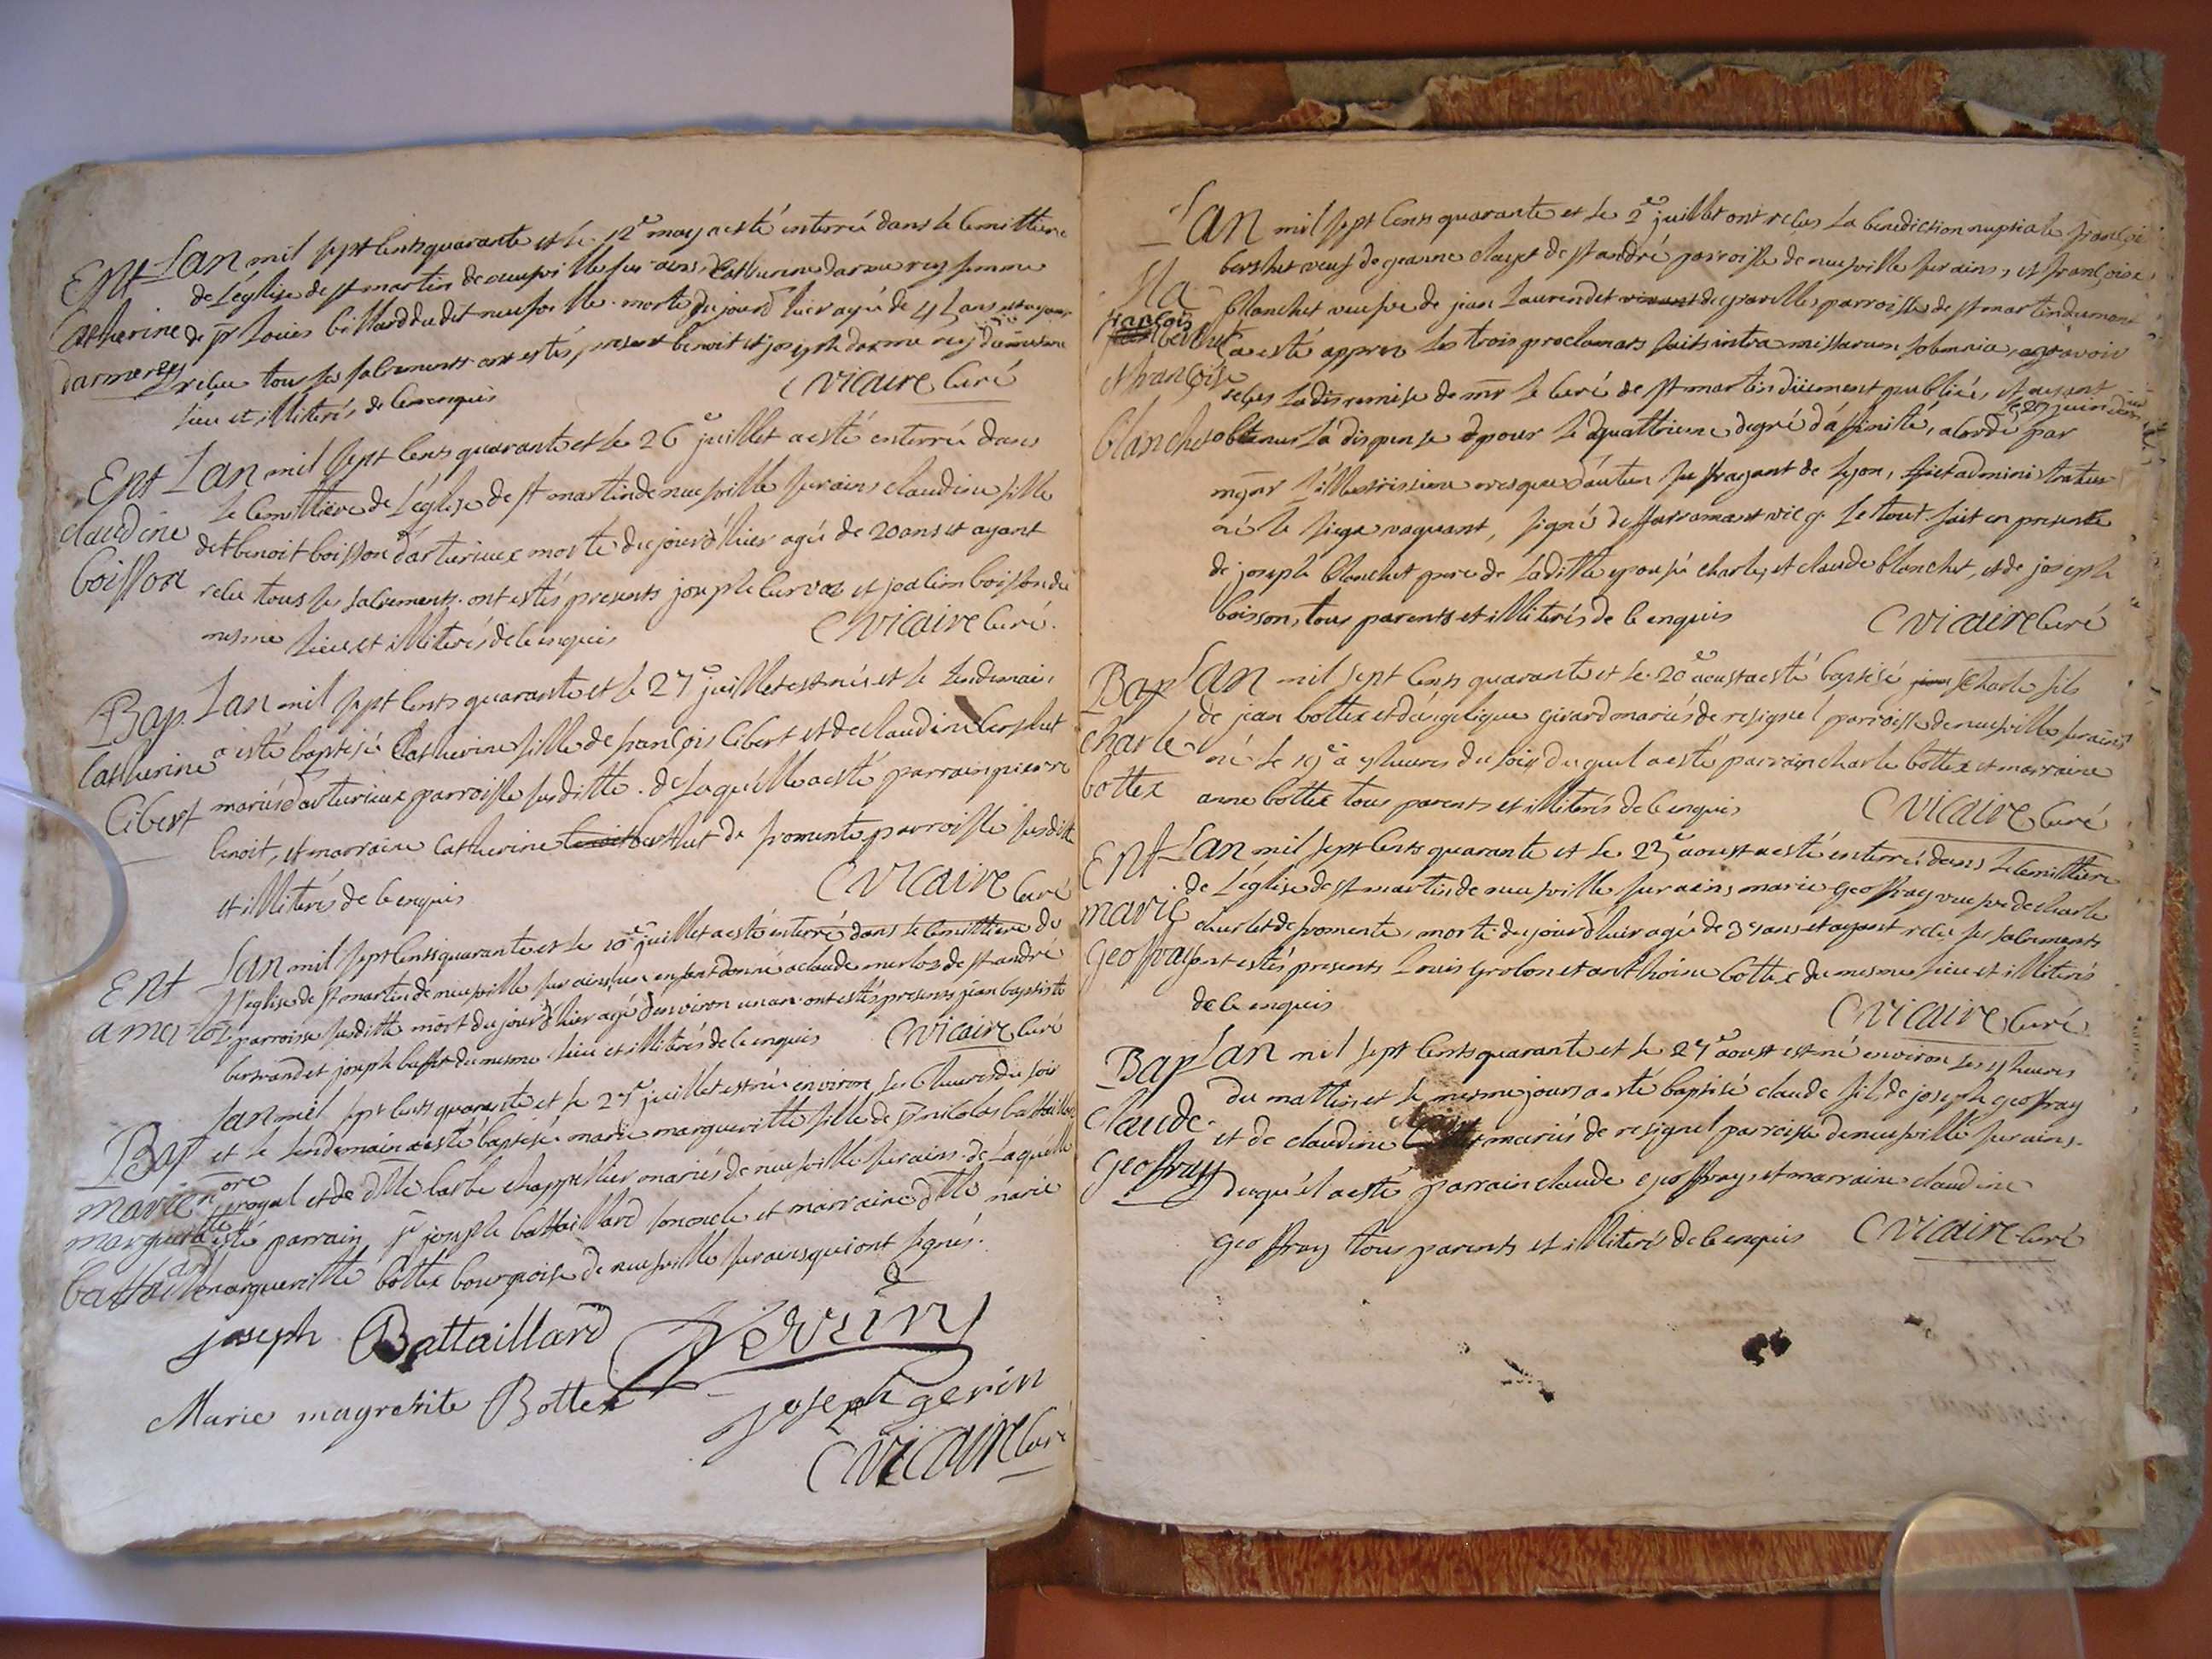 Ent
Catherine
darmerey
Lan mil sept cents quarante et le 12e may a esté interrée dans le cemittiere
de L'église de st martin de neufville sur ains, Catherine darmerey femme
de sr Louis billard dudit neufville morte du jourd'hier agée de 45 ans et ayant
reçeu tous ses sacrements ont estés present benoit et joseph darmerey du mesme
lieu et illiterés de ce enquis
C vicaire Curé
Ent
claudine
boisson
Lan mil sept cents quarante et le 26e juillet a esté enterrée dans
le Cemittiere de L'église de st martin de neufville sur ains claudine fille
de benoit boisson d'arturieux morte du jourd'hier agée de 20 ans et ayant
reçu tous ses sacrements ont estés presents joseph curvat et joachim boisson du
mesme lieu et illiterés de ce enquis
C vicaire Curé.
Bap
Catherine
Cibert
Lan mil sept cents quarante et le 27e juillet est née et le Lendemain
a esté baptisée Catherine fille de françois Cibert et de claudine berthet
mariés d'arturieux parroisse susditte. de Laquelle a esté parrain pierre
benoit, et marraine Catherine berthet de fromente parroisse susditte
et illiterés de ce enquis
C vicaire Curé
Ent
a merloz
Lan mil sept cents quarante et le 10e juillet a esté enterré dans le cemittiere de
l'église de st martin de neufville sur ains, un enfant donné a claude merloz de st andré
parroisse susditte mort du jourd'hier agé d'environ un an. ont estés presents jean baptiste
bertrand et joseph buffet du mesme lieu et illiterés de ce enquis
C vicaire Curé
Bap
marie
marguerite
battaillard
Lan mil sept cents quarante et le 27e juillet est née environ les 6 heures du soir
et le Lendemain a esté baptisée marie marguerite fille de sr nicolas battaillard
nore royal et de dlle barbe chappellier mariés de neufville sur ains. de Laquelle
a esté parrain sr joseph battaillard son oncle et marraine dlle marie
marguerite bottex bourgeoise de neufville sur ains qui ont signés.
joseph Battaillard
Perrin
Marie magrerite Bottex
joseph gerin
C vicaire Curé
Ma
françois
berthet
et françoise
blanchet
Lan mil sept cents quarante et le 2e juillet ont reçus La benediction nuptiale françois
berthet veuf de jeanne clayet de st andré parroisse de neufville sur ains, et françoise
blanchet veufve de jean Laurendet de gravelles parroisse de st martin du mont
ça esté apprez les trois proclamats faits intra missarum solemnia, après avoir
reçus La dis remise de mr le Curé de st martin düement publiée, et ayant
obtenus La dispense pour Le quattrieme degré d'affinité, accordé par
le 27 juin
mgnr L'illustrissime evesque d'autun suffragant de Lyon,
né le siege vaquant, signé de Le tout fait en presente
de joseph blanchet pere de laditte epousée charles et claude blanchet, et de joseph
boisson, tous parents et illiterés de ce enquis
C vicaire Curé
Bap
charle
bottex
Lan mil sept cents quarante et le 20e aoust a esté baptisé charle fils
de jean bottex et d'angelique girard mariés de resignel parroisse de neufville sur ains
né le 19e a 9 heures du soir duquel a esté parrain charle bottex et marraine
anne bottex tous parents et illiterés de ce enquis
C vicaire Curé
Ent
marie
geoffray
Lan mil sept cents quarante et le 23e aoust a esté enterrée dans Le cemittiere
de L'église de st martin de neufville sur ains marie geoffray veufve de charle
churlet de fromente, morte du jourd'hier agée de 35 ans et ayant reçu ses sacrements
ont estés presents Louis grolon et anthoine bottex du mesme lieu et illiterés
de ce enquis
C vicaire Curé
Bap
claude
geoffray
Lan mil sept cents quarante et le 27e aoust est né environ les 9 heures
du mattin et le mesme jours a esté baptisé claude fils de joseph geoffray
et de claudine mariés de resignel parroisse de neufville sur ains.
duquel a esté parrain claude geoffray et marraine claudine
geoffray tous parents et illiterés de ce enquis
C vicaire Curé